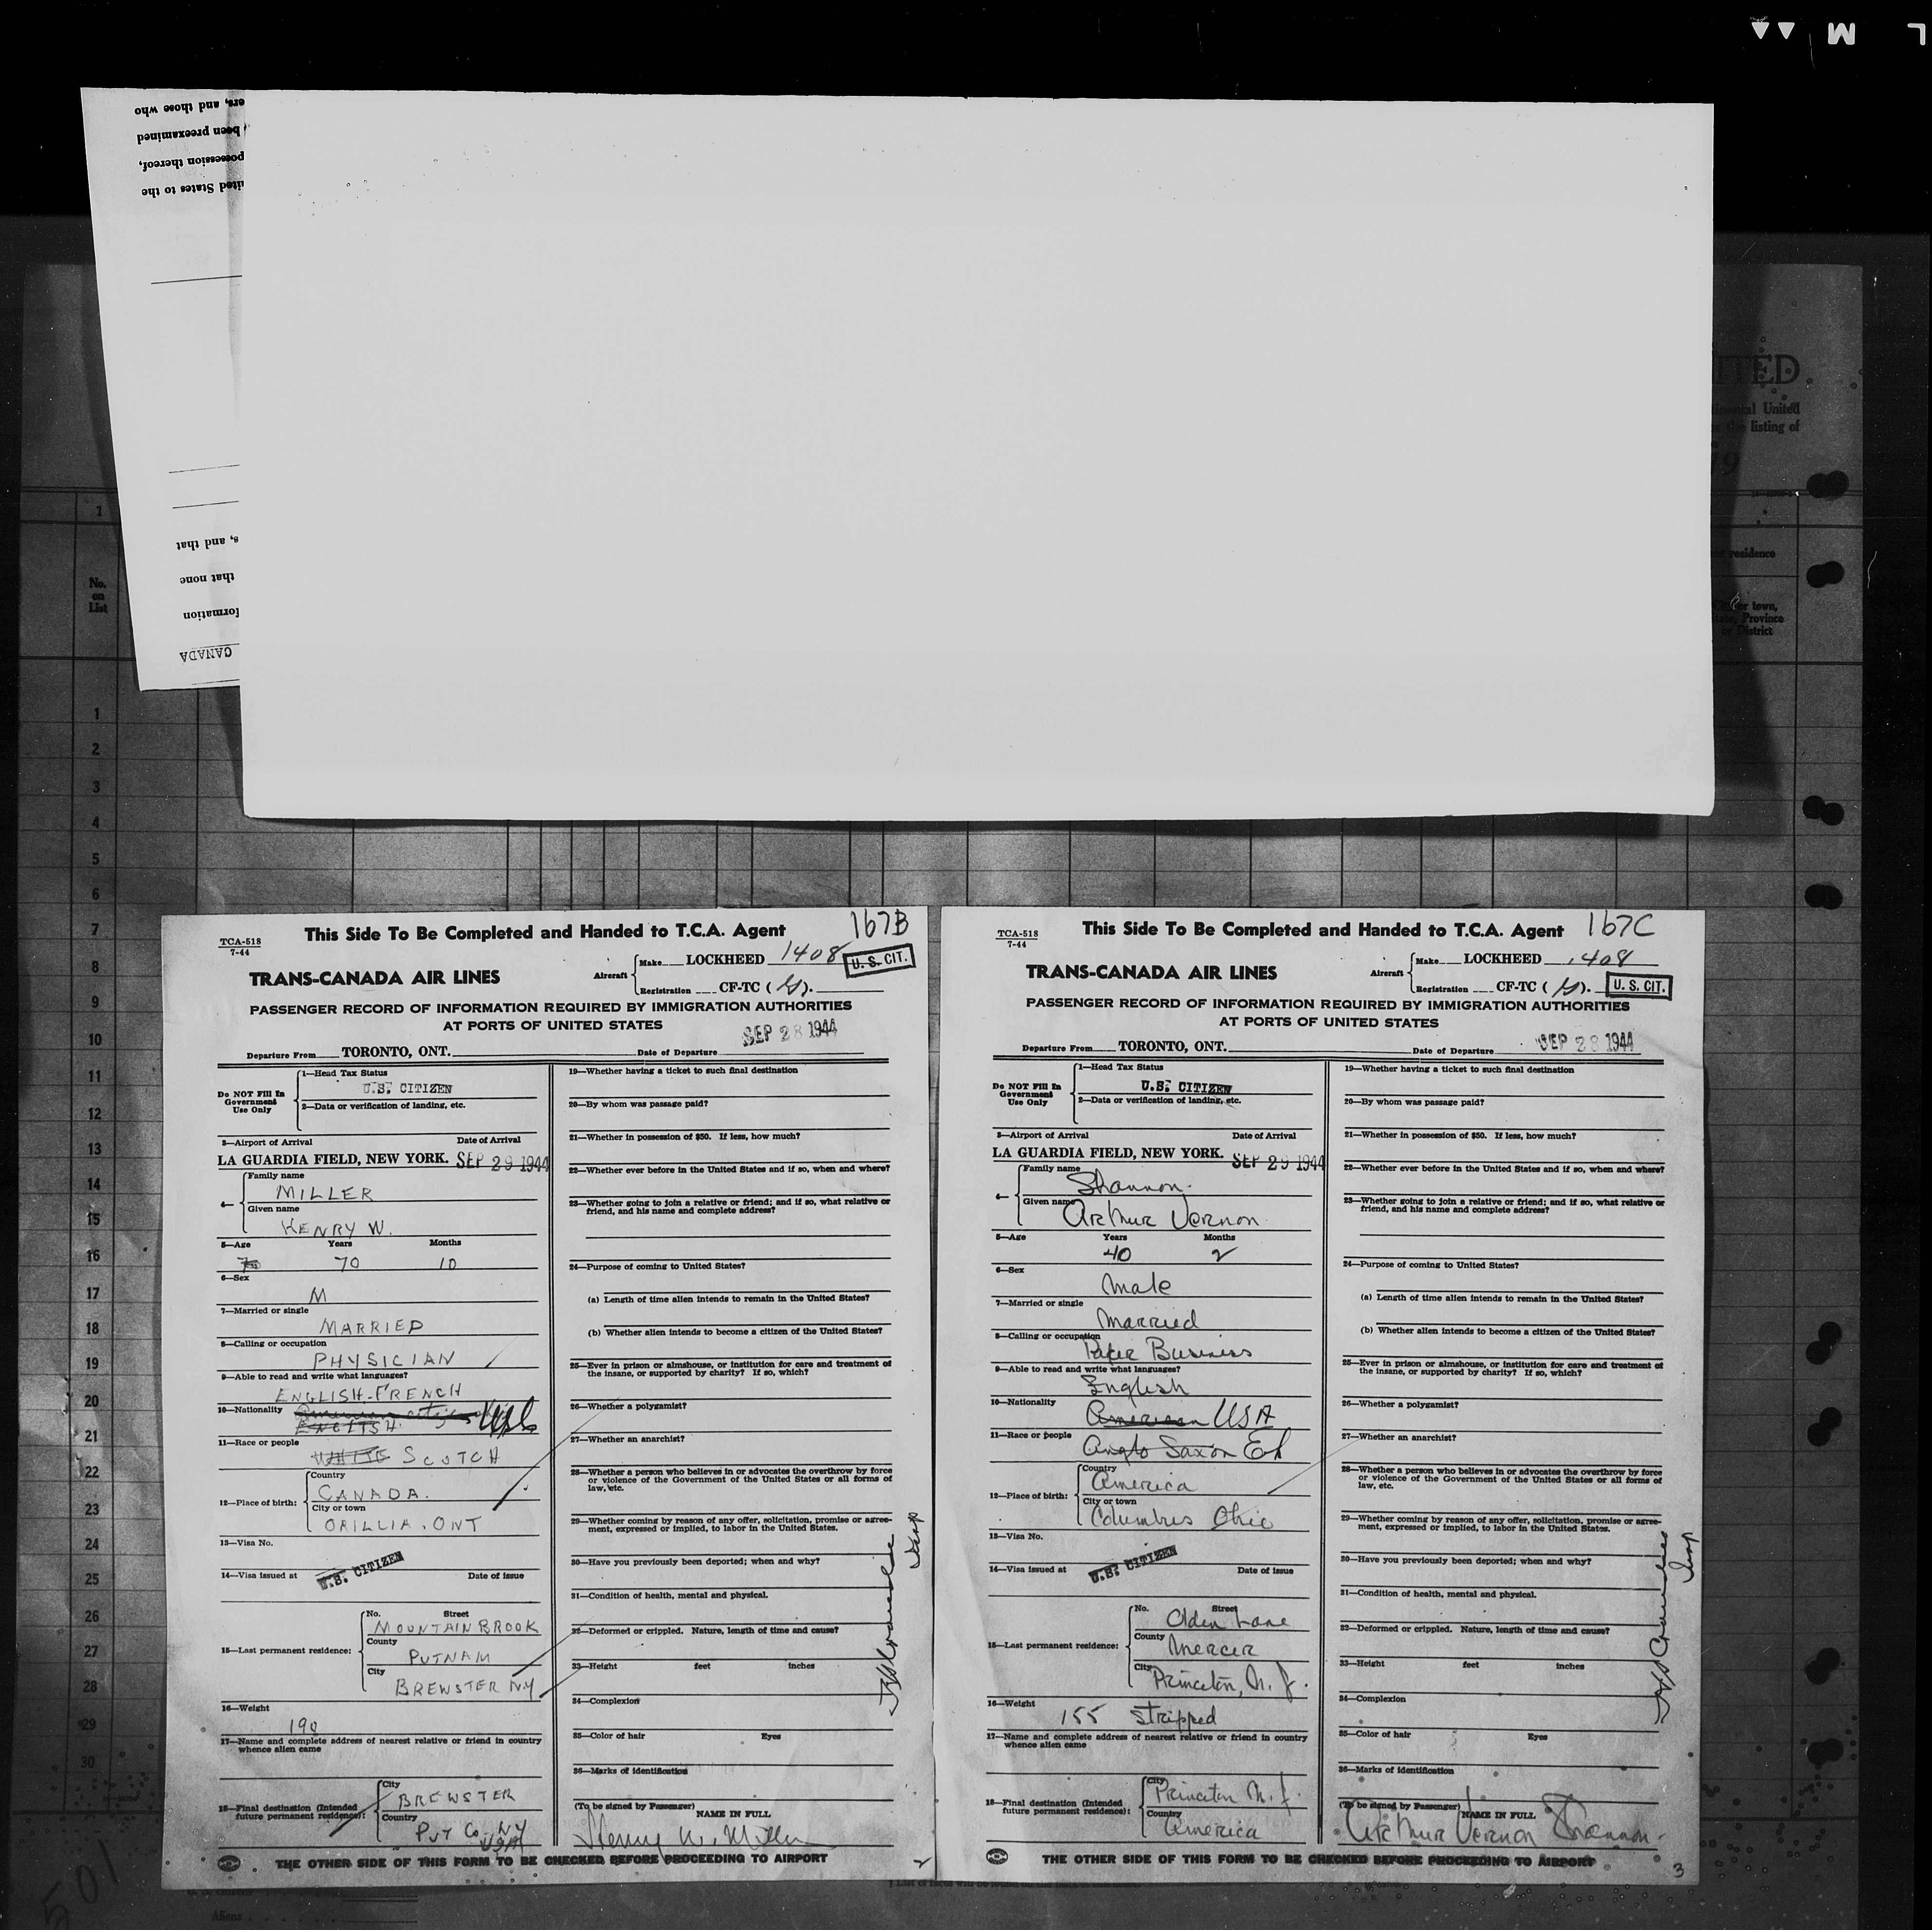 L M
ers, and those who
been preexamined
possession thereof,
ited States to the
s, and that
that none
formation
CANADA
ITED
tinental United
the listing of
residence
or town,
Province
or District
1
No.
on
List
1
2
3
4
5
6
7
8
9
10
11
12
13
14
15
16
17
18
19
20
21
22
23
24
25
26
27
28
29
30
This Side To Be Completed and Handed to T.C.A. Agent 167B
TCA-518
7-44
TRANS-CANADA AIR LINES
Aircraft
Make LOCKHEED 1408
U. S. CIT.
Registration CF-TC ( ).
PASSENGER RECORD OF INFORMATION REQUIRED BY IMMIGRATION AUTHORITIES
AT PORTS OF UNITED STATES
SEP 28 1944
Departure From TORONTO, ONT. Date of Departure
Do NOT Fill In
Government
Use Only
1—Head Tax Status
U.S. CITIZEN
2—Data or verification of landing, etc.
3—Airport of Arrival Date of Arrival
LA GUARDIA FIELD, NEW YORK. SEP 29 1944
4—
Family name
MILLER
Given name
HENRY W.
5—Age Years Months
70 10
6—Sex
M
7—Married or single
MARRIED
8—Calling or occupation
PHYSICIAN
9—Able to read and write what languages?
ENGLISH-FRENCH
10—Nationality American citizen
ENGLISH
11—Race or people
WHITE SCOTCH
12—Place of birth:
Country
CANADA.
City or town
ORILLIA. ONT
13—Visa No.
14—Visa issued at U.S. CITIZEN Date of issue
15—Last permanent residence:
No. Street
MOUNTAIN BROOK
County
PUTNAM
City
BREWSTER NY
16—Weight
190
17—Name and complete address of nearest relative or friend in country
whence alien came
18—Final destination (Intended
future permanent residence):
City
BREWSTER
Country
PUT Co. NY
USA
19—Whether having a ticket to such final destination
20—By whom was passage paid?
21—Whether in possession of $50. If less, how much?
22—Whether ever before in the United States and if so, when and where?
23—Whether going to join a relative or friend; and if so, what relative or
friend, and his name and complete address?
24—Purpose of coming to United States?
(a) Length of time alien intends to remain in the United States?
(b) Whether alien intends to become a citizen of the United States?
25—Ever in prison or almshouse, or institution for care and treatment of
the insane, or supported by charity? If so, which?
26—Whether a polygamist?
27—Whether an anarchist?
28—Whether a person who believes in or advocates the overthrow by force
or violence of the Government of the United States or all forms of
law, etc.
29—Whether coming by reason of any offer, solicitation, promise or agree-
ment, expressed or implied, to labor in the United States.
30—Have you previously been deported; when and why?
31—Condition of health, mental and physical.
32—Deformed or crippled. Nature, length of time and cause?
33—Height feet inches
34—Complexion
35—Color of hair Eyes
36—Marks of identification
(To be signed by Passenger)
NAME IN FULL
Henry W. Miller
THE OTHER SIDE OF THIS FORM TO BE CHECKED BEFORE PROCEEDING TO AIRPORT
2
This Side To Be Completed and Handed to T.C.A. Agent 167C
TCA-518
7-44
TRANS-CANADA AIR LINES
Aircraft
Make LOCKHEED 1408
Registration CF-TC ( ).
U. S. CIT.
PASSENGER RECORD OF INFORMATION REQUIRED BY IMMIGRATION AUTHORITIES
AT PORTS OF UNITED STATES
SEP 28 1944
Departure From TORONTO, ONT. Date of Departure
Do NOT Fill In
Government
Use Only
1—Head Tax Status
U.S. CITIZEN
2—Data or verification of landing, etc.
3—Airport of Arrival Date of Arrival
LA GUARDIA FIELD, NEW YORK. SEP 29 1944
4—
Family name
Shannon.
Given name
Arthur Vernon
5—Age Years Months
40 2
6—Sex
Male
7—Married or single
Married
8—Calling or occupation
Paper Business
9—Able to read and write what languages?
English
10—Nationality
American USA
11—Race or people
Anglo Saxon
12—Place of birth:
Country
America
City or town
Columbus Ohio
13—Visa No.
14—Visa issued at U.S. CITIZEN Date of issue
15—Last permanent residence:
No. Street
Olden Lane
County
Mercer
City
Princeton, N. J.
16—Weight
155 Stripped
17—Name and complete address of nearest relative or friend in country
whence alien came
18—Final destination (Intended
future permanent residence):
City
Princeton N. J.
Country
America
19—Whether having a ticket to such final destination
20—By whom was passage paid?
21—Whether in possession of $50. If less, how much?
22—Whether ever before in the United States and if so, when and where?
23—Whether going to join a relative or friend; and if so, what relative or
friend, and his name and complete address?
24—Purpose of coming to United States?
(a) Length of time alien intends to remain in the United States?
(b) Whether alien intends to become a citizen of the United States?
25—Ever in prison or almshouse, or institution for care and treatment of
the insane, or supported by charity? If so, which?
26—Whether a polygamist?
27—Whether an anarchist?
28—Whether a person who believes in or advocates the overthrow by force
or violence of the Government of the United States or all forms of
law, etc.
29—Whether coming by reason of any offer, solicitation, promise or agree-
ment, expressed or implied, to labor in the United States.
30—Have you previously been deported; when and why?
31—Condition of health, mental and physical.
32—Deformed or crippled. Nature, length of time and cause?
33—Height feet inches
34—Complexion
35—Color of hair Eyes
36—Marks of identification
(To be signed by Passenger)
NAME IN FULL
Arthur Vernon Shannon.
THE OTHER SIDE OF THIS FORM TO BE CHECKED BEFORE PROCEEDING TO AIRPORT
3
Aliens